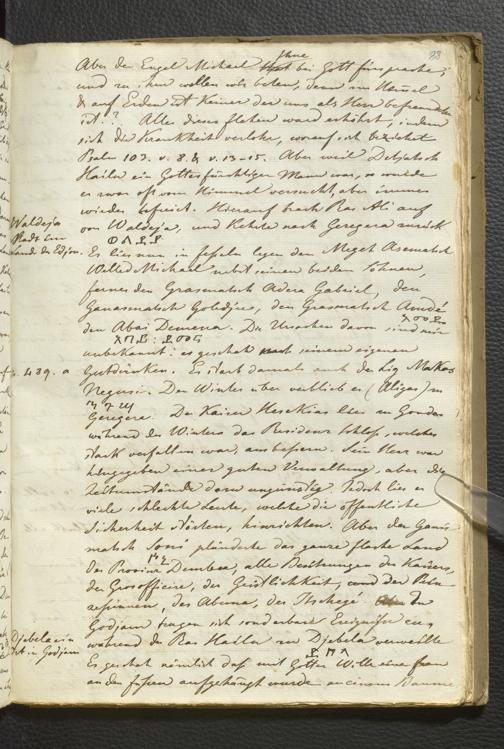 93
Aber der Engel Michael Ihre bei Gott fürsprache,
und zu ihm wollen wir beten, denn im Himmel
& auf Erden ist Keiner der uns als Herr
ist? Alles dieses flehen ward erhöhrt, indem
sich die Krankheit verlohr, worauf sich beziehet
Psalm 103. v. 8. & v. 13-15. Aber weil Detjatsch
Hailu ein Gottesfürchtiger Mann war, so wurde
er zwar oft vom Himmel versucht, aber immer
wieder befreit. Hierauf brach Ras Ali auf
von Waldeja, und kehrte nach Geregera zurück
Waldeja
Stadt im
Lande der Edjow.
Er lies nun in fesseln legen den Asematsch
Welled Michael nebst seinen beiden Söhnen,
ferner den Grasematsch Adera Gabriel, den
Ganasmatsch Gobdjee, den Grasmatsch Amdé
den Abai Demena. Die Ursachen davon sind mir
unbekannt: es geschah nach seinem eigenen
f. 439. a
Gutdünken. Es starb damals auch der Liq Makos
Negusi. Den Winter über verblieb er (Aligaz) in
Geregera. Der Kaiser Heskias lies in Gondar
während des Winters das Residenz Schloss, welches
stark verfallen war, ausbessern. Sein Herz war
hingegeben einer guten Verwaltung, aber die
Zeitumstände dem ungünstig. Jedoch lies er
viele schlechte Leute, welche die öffentliche
Sicherheit störten, hinrichten. Aber der Ganis-
matsch plünderte das ganze flache Land
der Provinz Dembea, alle Besitzungen des Kaisers,
der Grosofficire, der Geistlichkeit, und der
des Abuna, des Itschegé In
Godjam trugen sich sonderbare Ereignisse zu,
Djebela ein
Ort in Godjam
während der Ras Hailu in Djebela verweilte
ደ በ ላ
Es geschah nämlich daß mit Gottes Wille eine frau
an den füssen aufgehängt wurde an einem Baume